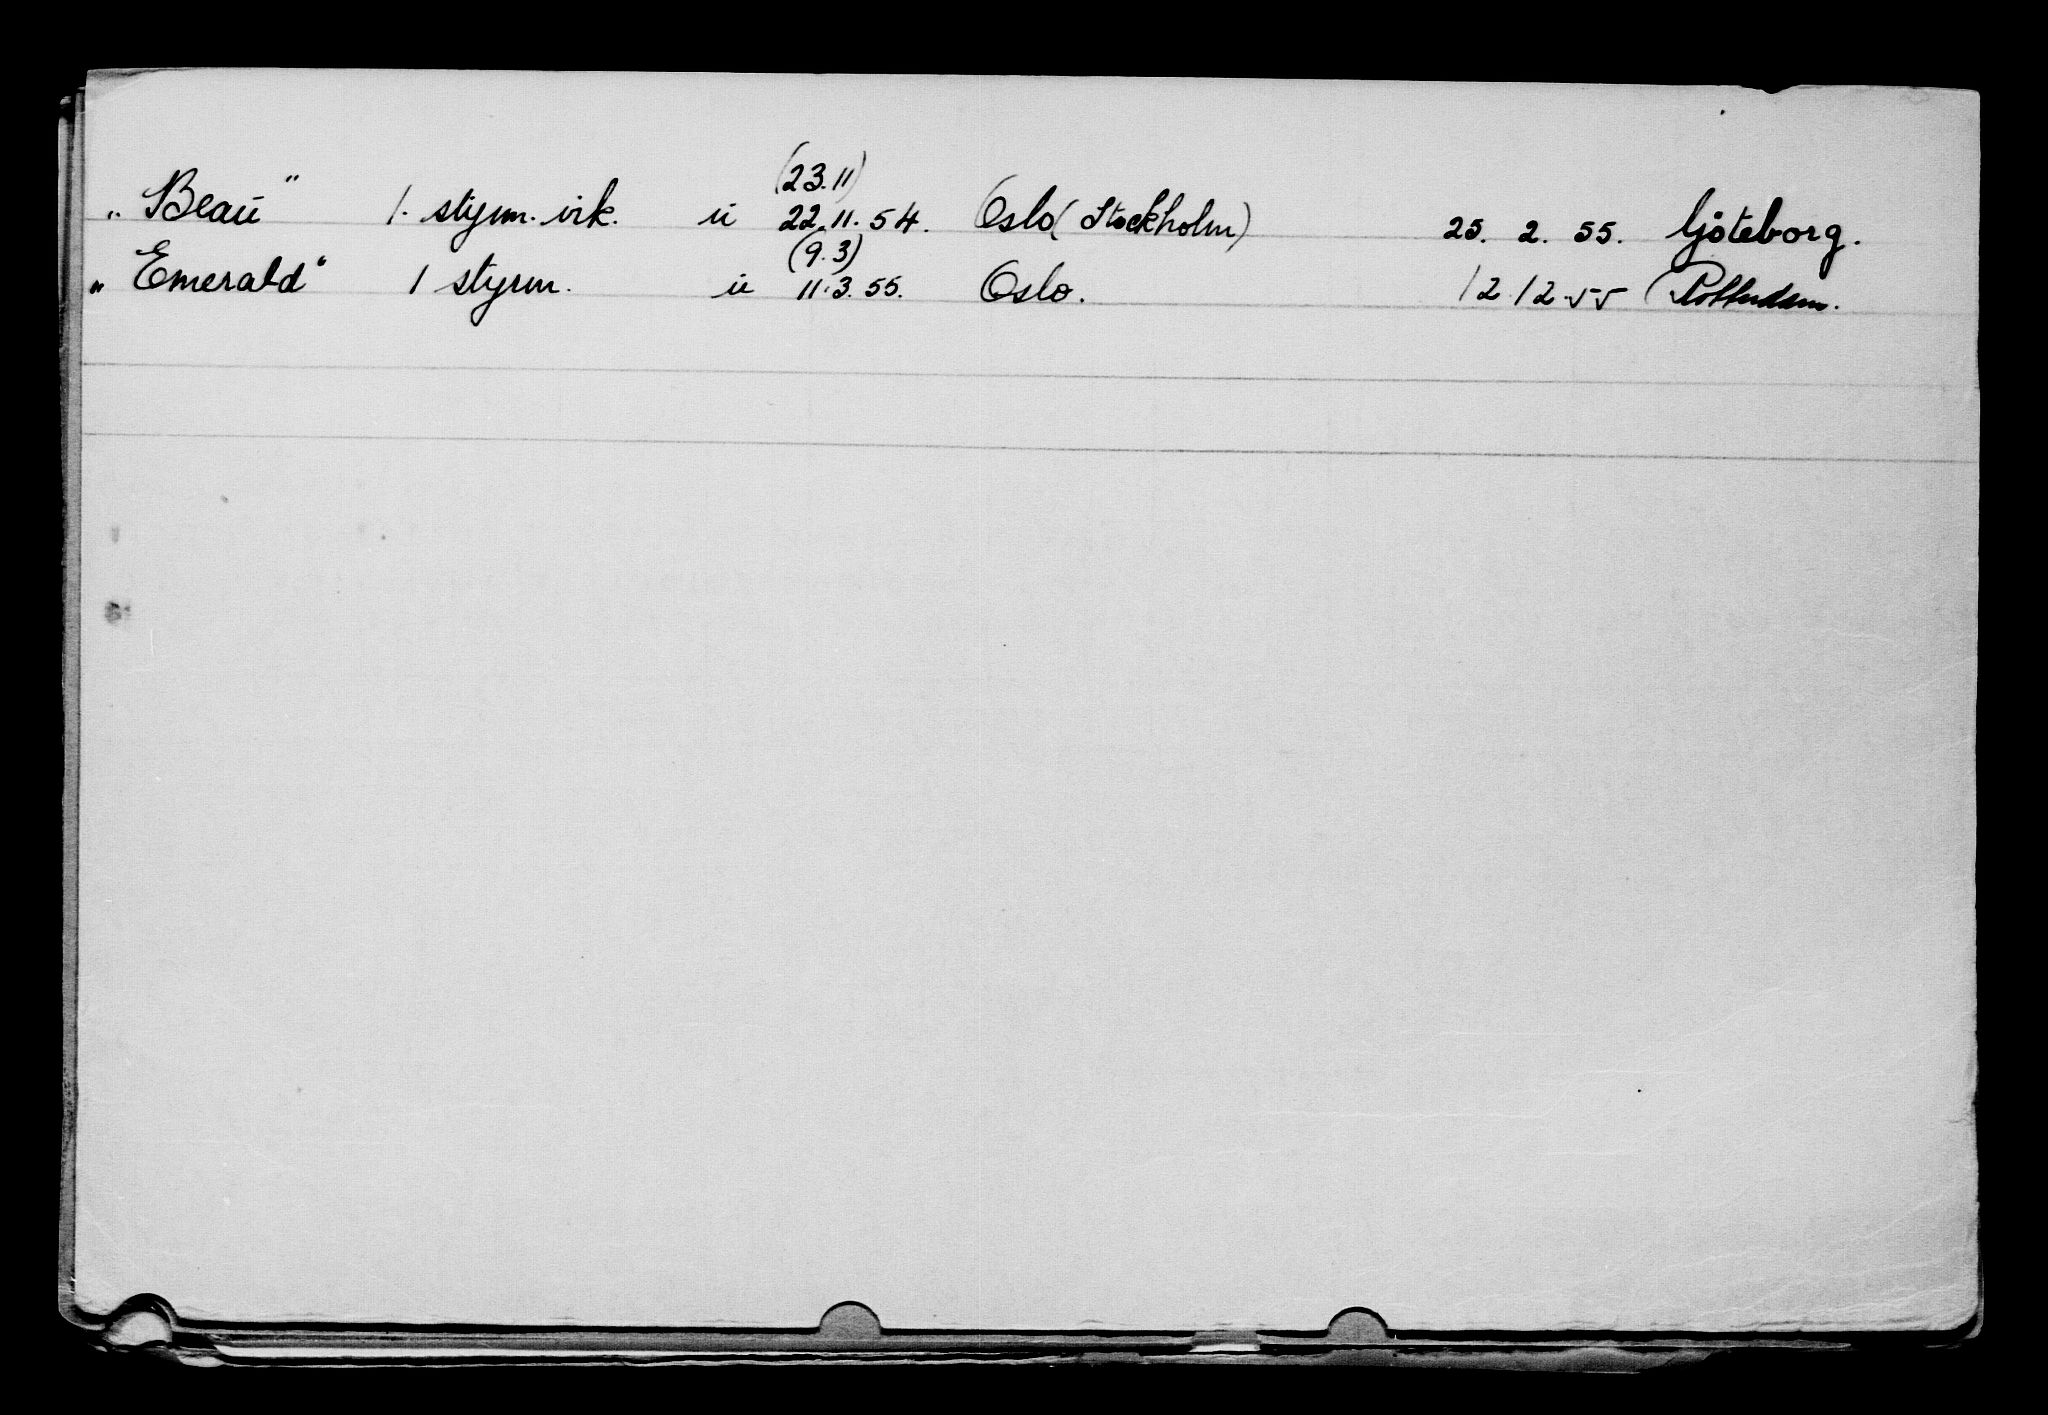 (23.11)
„Beaŭ” 1. styrm. vik. u 22.11.54. Oslo (Stockholm) 25. 2. 55. Göteborg.
(9.3)
„Emerald” 1 styrm. u 11.3.55. Oslo. 12 12-55 Rotterdam.